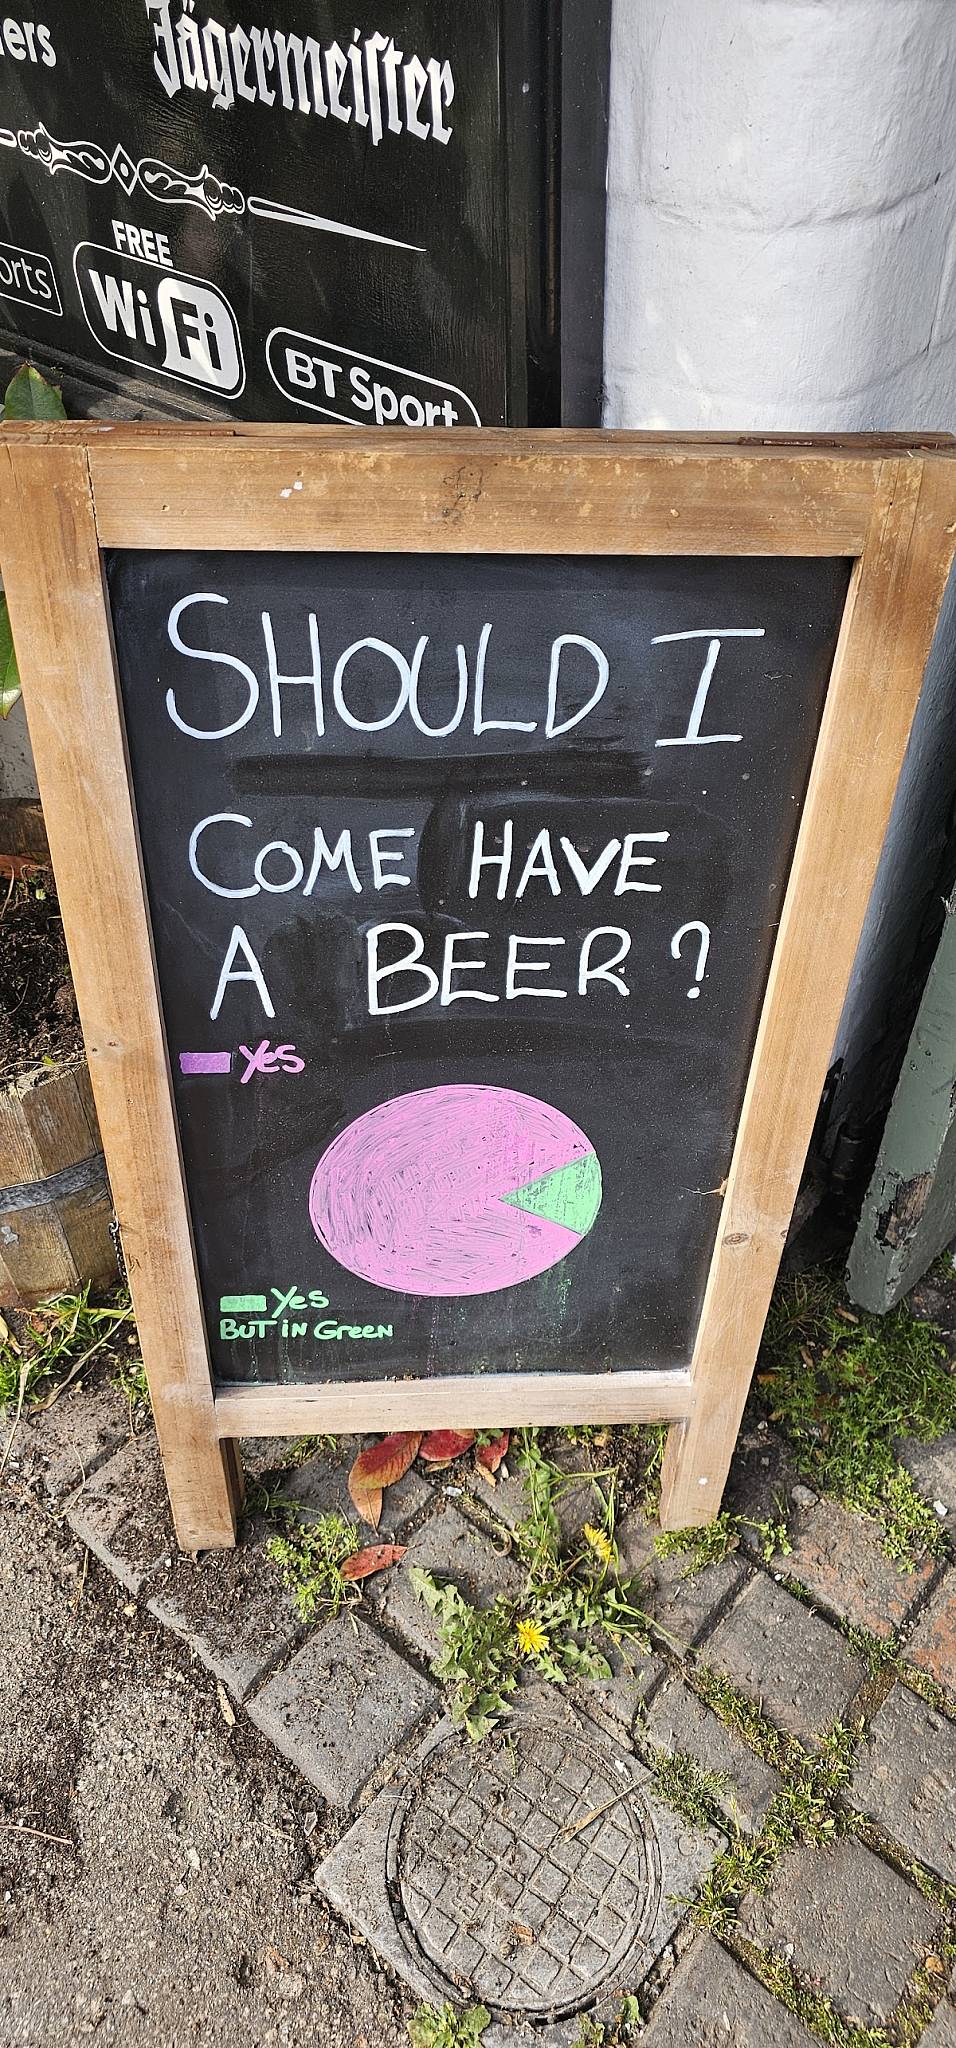 Jägermeister
FREE
WiFi
BT Sport
SHOULD I
COME HAVE
A BEER?
Yes
Yes
BUT iN GreeN